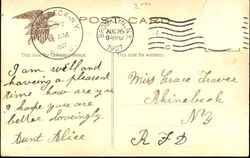 POST CARD
BROOKLYN, N.Y.
AUG 26
9 PM
1907
This side for Correspondence.
This side for Address.
I am well and
having a pleasant
time how are you
I hope you are
better lovingly
Aunt Alice
Miss Grace Traver
Rhinebeck
N.Y
R F D